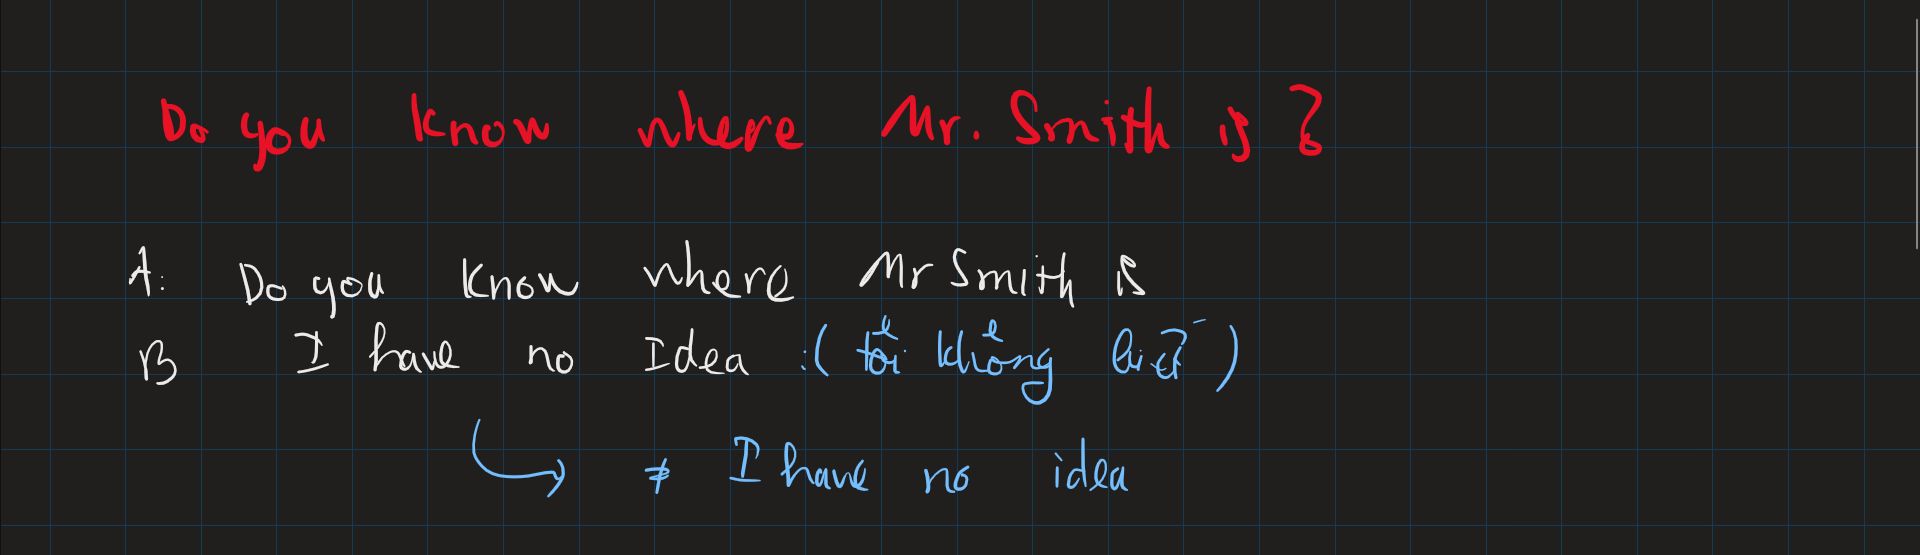 Do you know where Mr. Smith is ?
A: Do you know where Mr Smith is
B I have no Idea :( tôi không biết )
≠ I have no idea